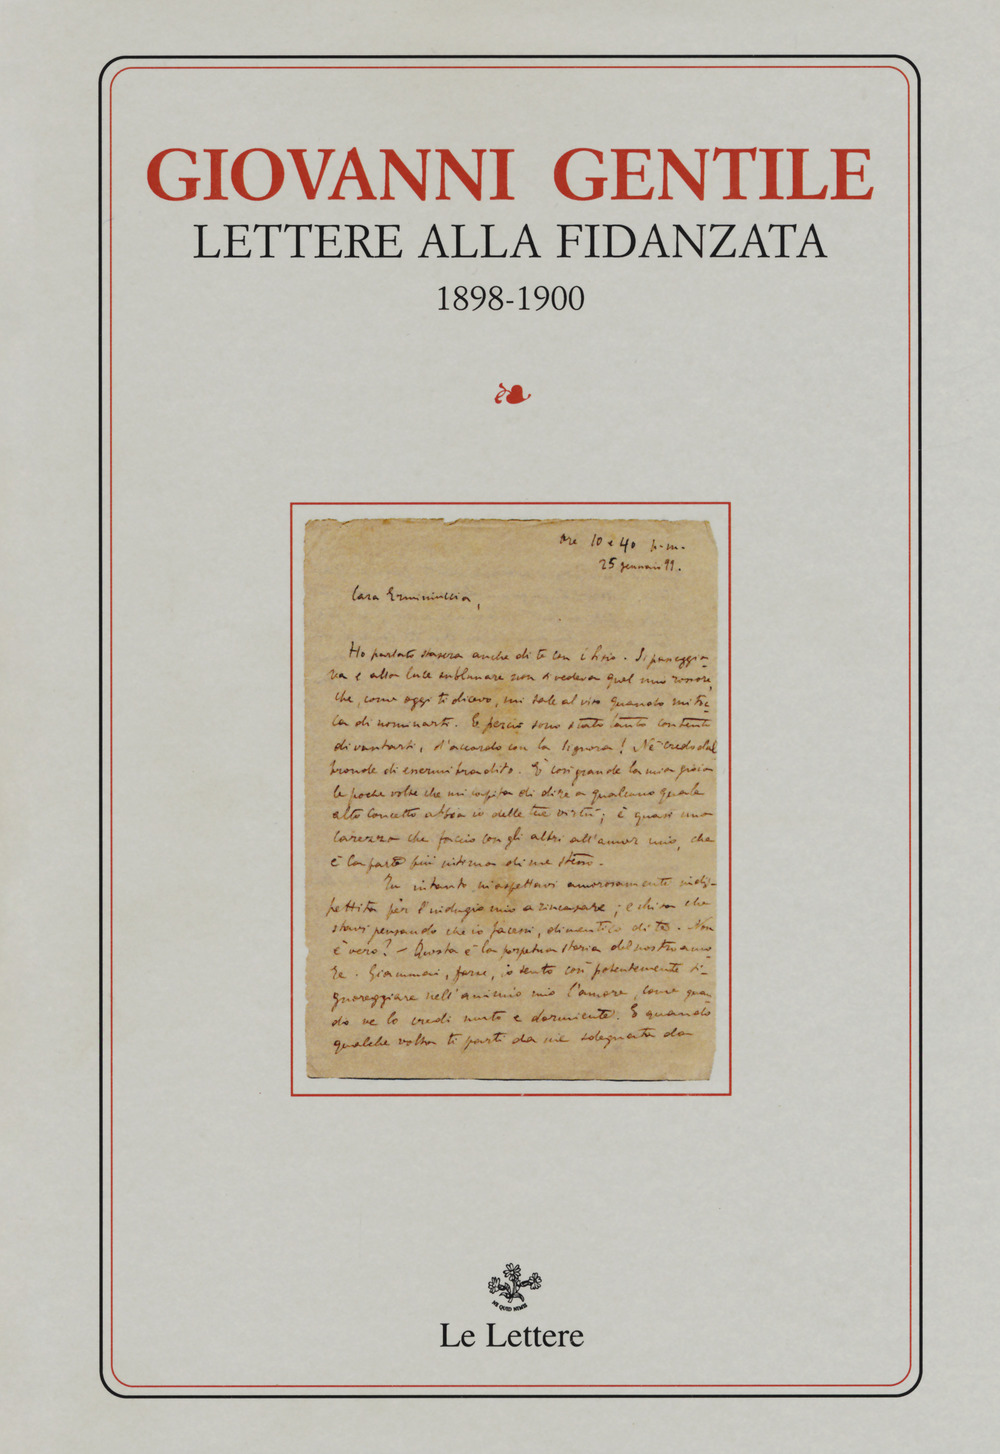 GIOVANNI GENTILE
LETTERE ALLA FIDANZATA
1898-1900
Ore 10 e 40 p.m.
25 gennaio 99.
Cara Erminiuccia,
Ho parlato stasera anche di te con
va e alla luce sublunare non si vedeva quel mio rossore,
che, come oggi ti dicevo, mi sale al viso quando mi toc-
ca di nominarti. E perciò sono stato tanto contento
di vantarti, d'accordo con la Signora! Nè credo dal
tronde di essermi tradito. È così grande la mia gioia
le poche volte che mi capita di dire a qualcuno quale
alto concetto abbia io delle tue virtù; è quasi una
carezza che faccio con gli altri all'amor mio, che
è la parte più intima di me stesso.
Tu intanto m'aspettavi amorosamente indi-
pettita per l'indugio mio a rincasare; e chissa che
stavi pensando che io facessi, dimentico di te. Non
è vero? — Questa è la perpetua storia del nostro amo
re. Giammai, forse, io sento così potentemente si-
gnoreggiare nell'animo mio l'amore, come quan
do tu lo credi muto e dormiente. E quando
qualche volta ti parti da me sdegnata da
NE QUID NIMIS
Le Lettere